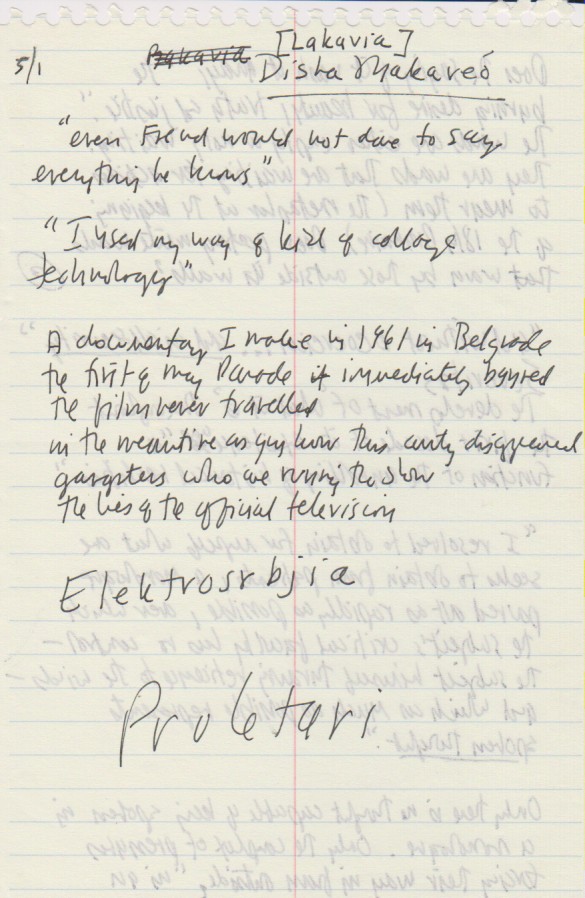 5/1
[Lakavia]
Disha Makaveó
"even Freud would not dare to say
everything he knows"
"I used my way of kist of collage
technology"
A documentary I make in 1961 in Belgrade
the first of may Parade it immediately
the film never travelled
in the meantime as you know this country disappeared
gangsters who are running the show
the lies of the official television
Elektrosrbjia
Proletari